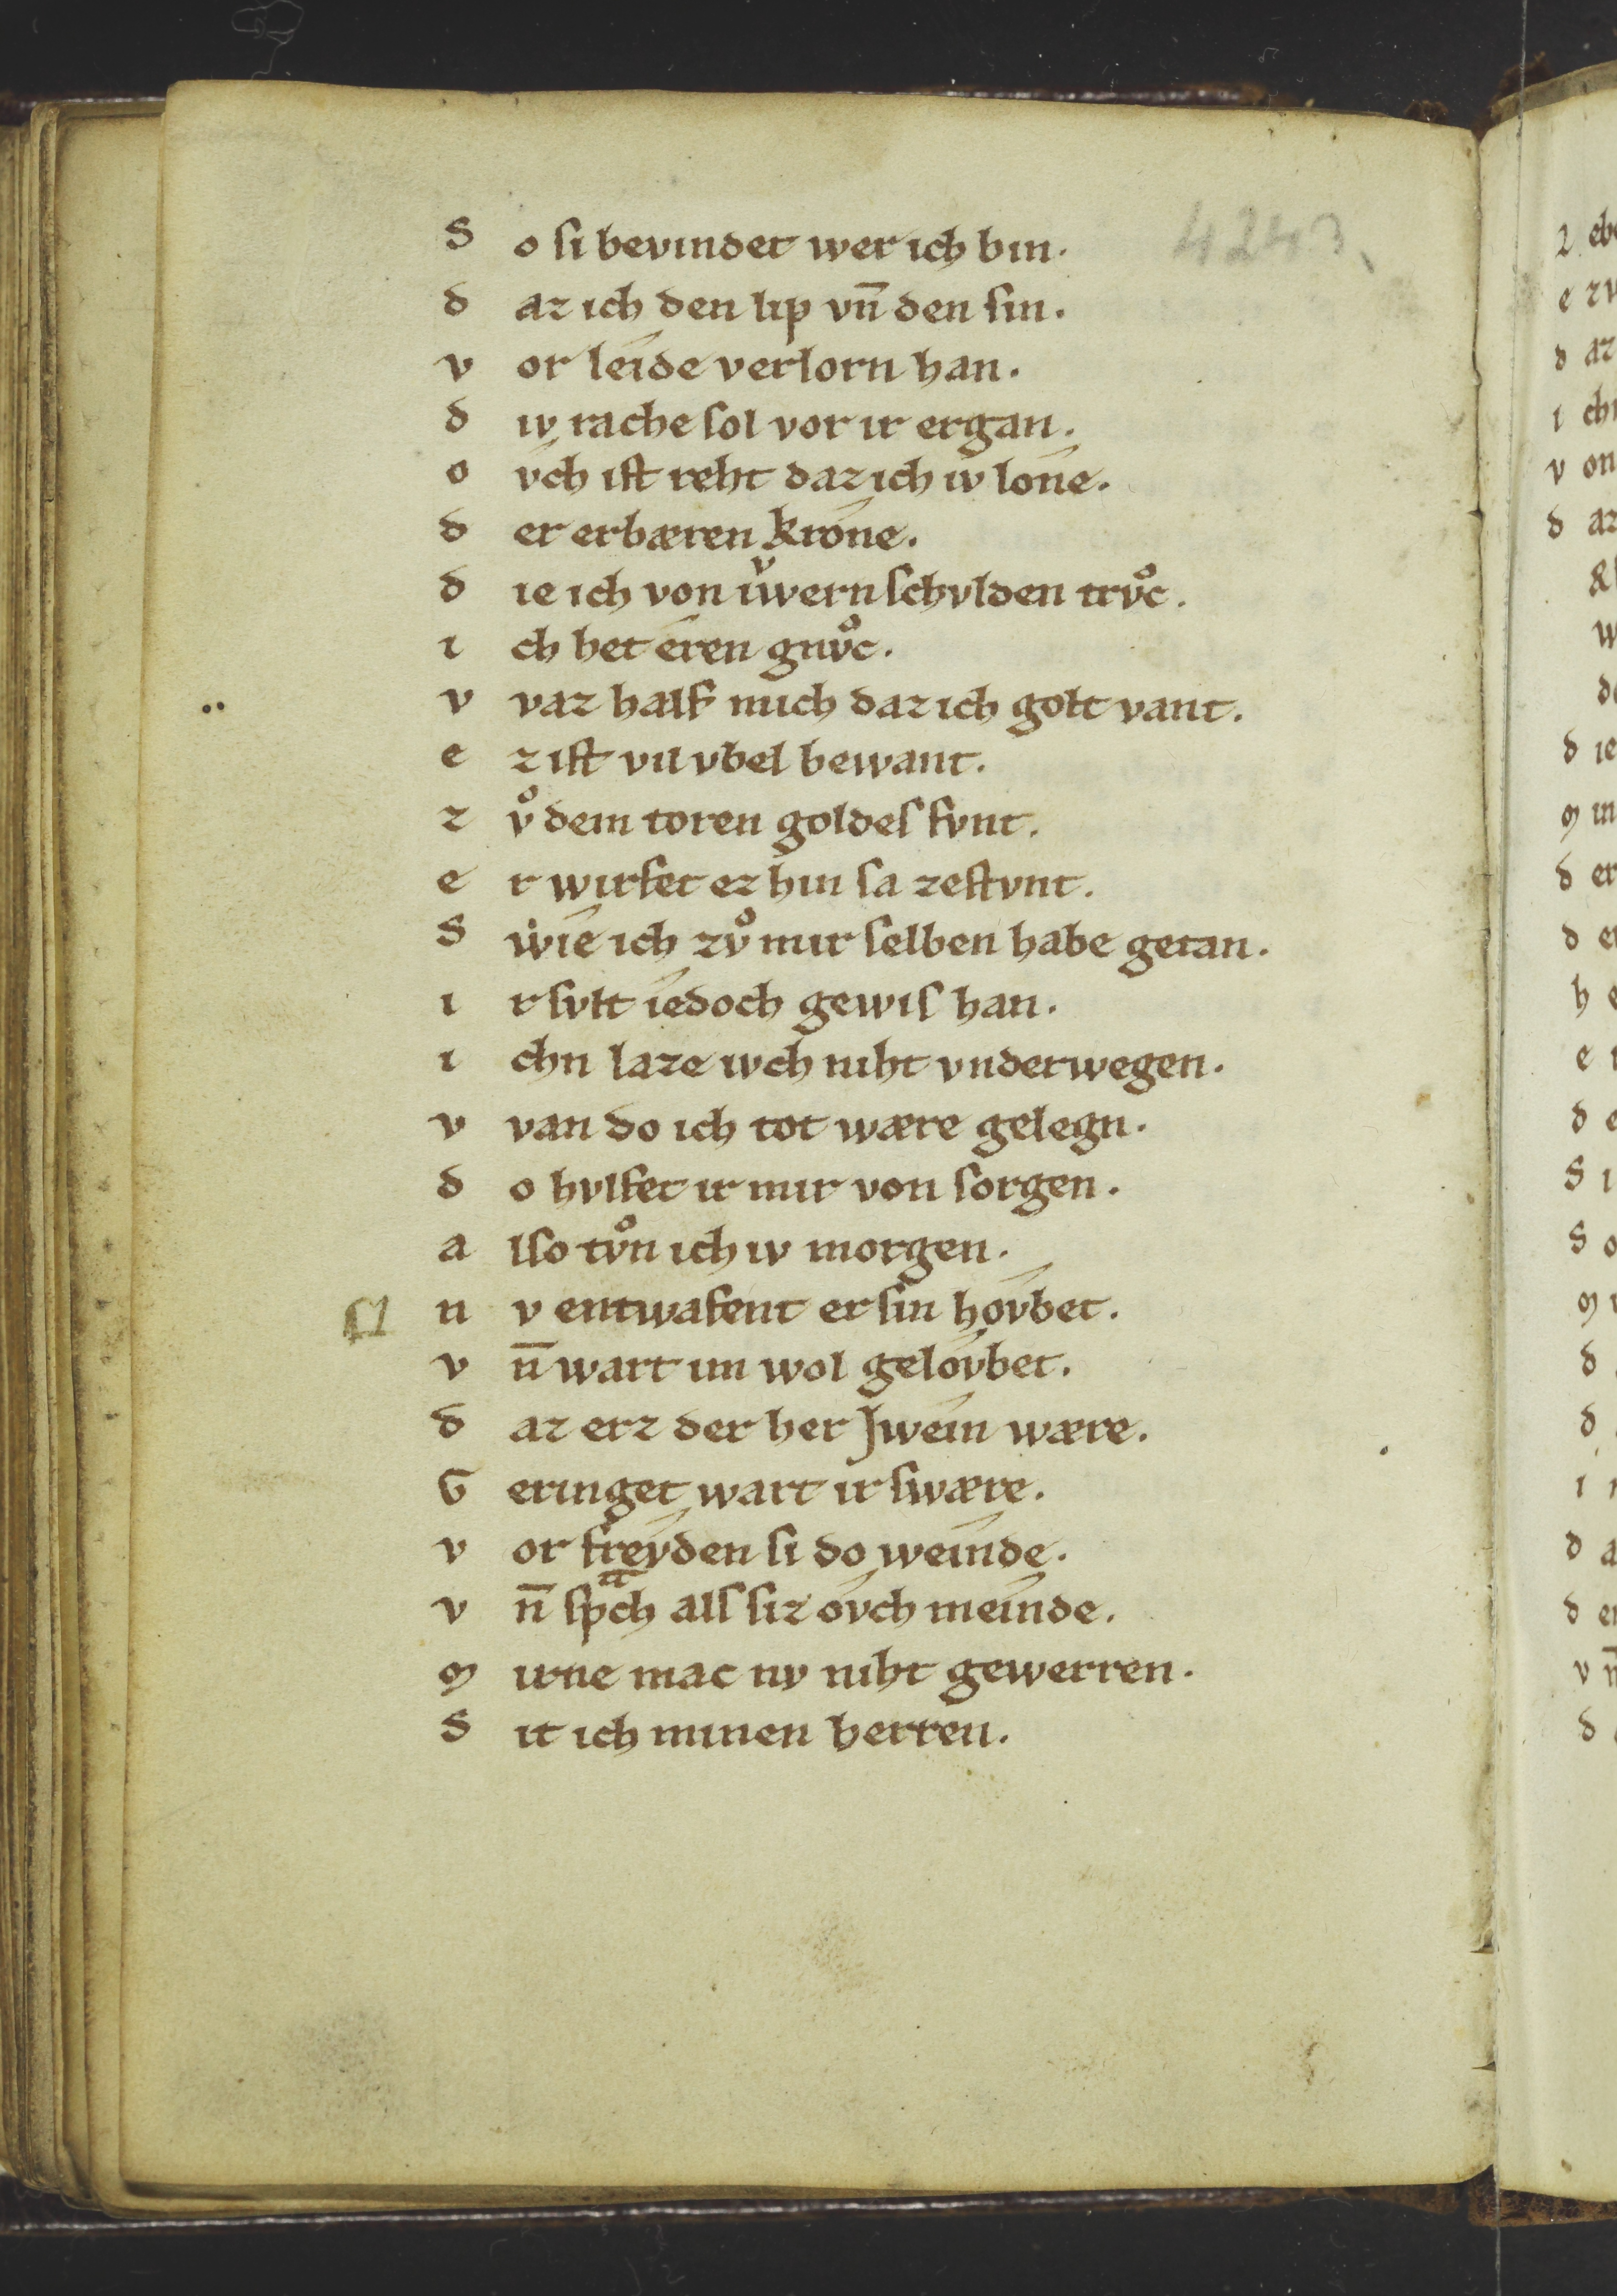 4243
S o ſi bevindet wer ich bin.
d az ich den lip vn̄ den ſin.
v or leide verlorn han.
d iv rache ſol vor ir ergan.
o vch iſt reht daz ich iv lone.
d er erbæren krone.
d ie ich von iv̓wern ſchvlden trvͦc.
i ch het eren gnvͦc.
v vaz half mich daz ich golt vant.
e z iſt vil vbel bewant.
z vͦ dem toren goldeſ fvnt.
e r wirfet ez hin ſa zeſtvnt.
S wie ich zvͦ mir ſelben habe getan.
i r ſvlt iedoch gewiſ han.
i chn laze iwch niht vnderwegen.
v van do ich tot wære gelegn.
d o hvlfet ir mir von ſorgen.
a lſo tvͦn ich iv morgen.
n v entwafent er ſin hovbet.
v n̄ wart im wol gelovbet.
d az erz der her Jwein wære.
G eringet wart ir ſwære.
v or freyden ſi do weinde.
v n̄ ſpͣch alſ ſiz ovch meinde.
m irne mac nv niht gewerren.
S it ich minen herren.